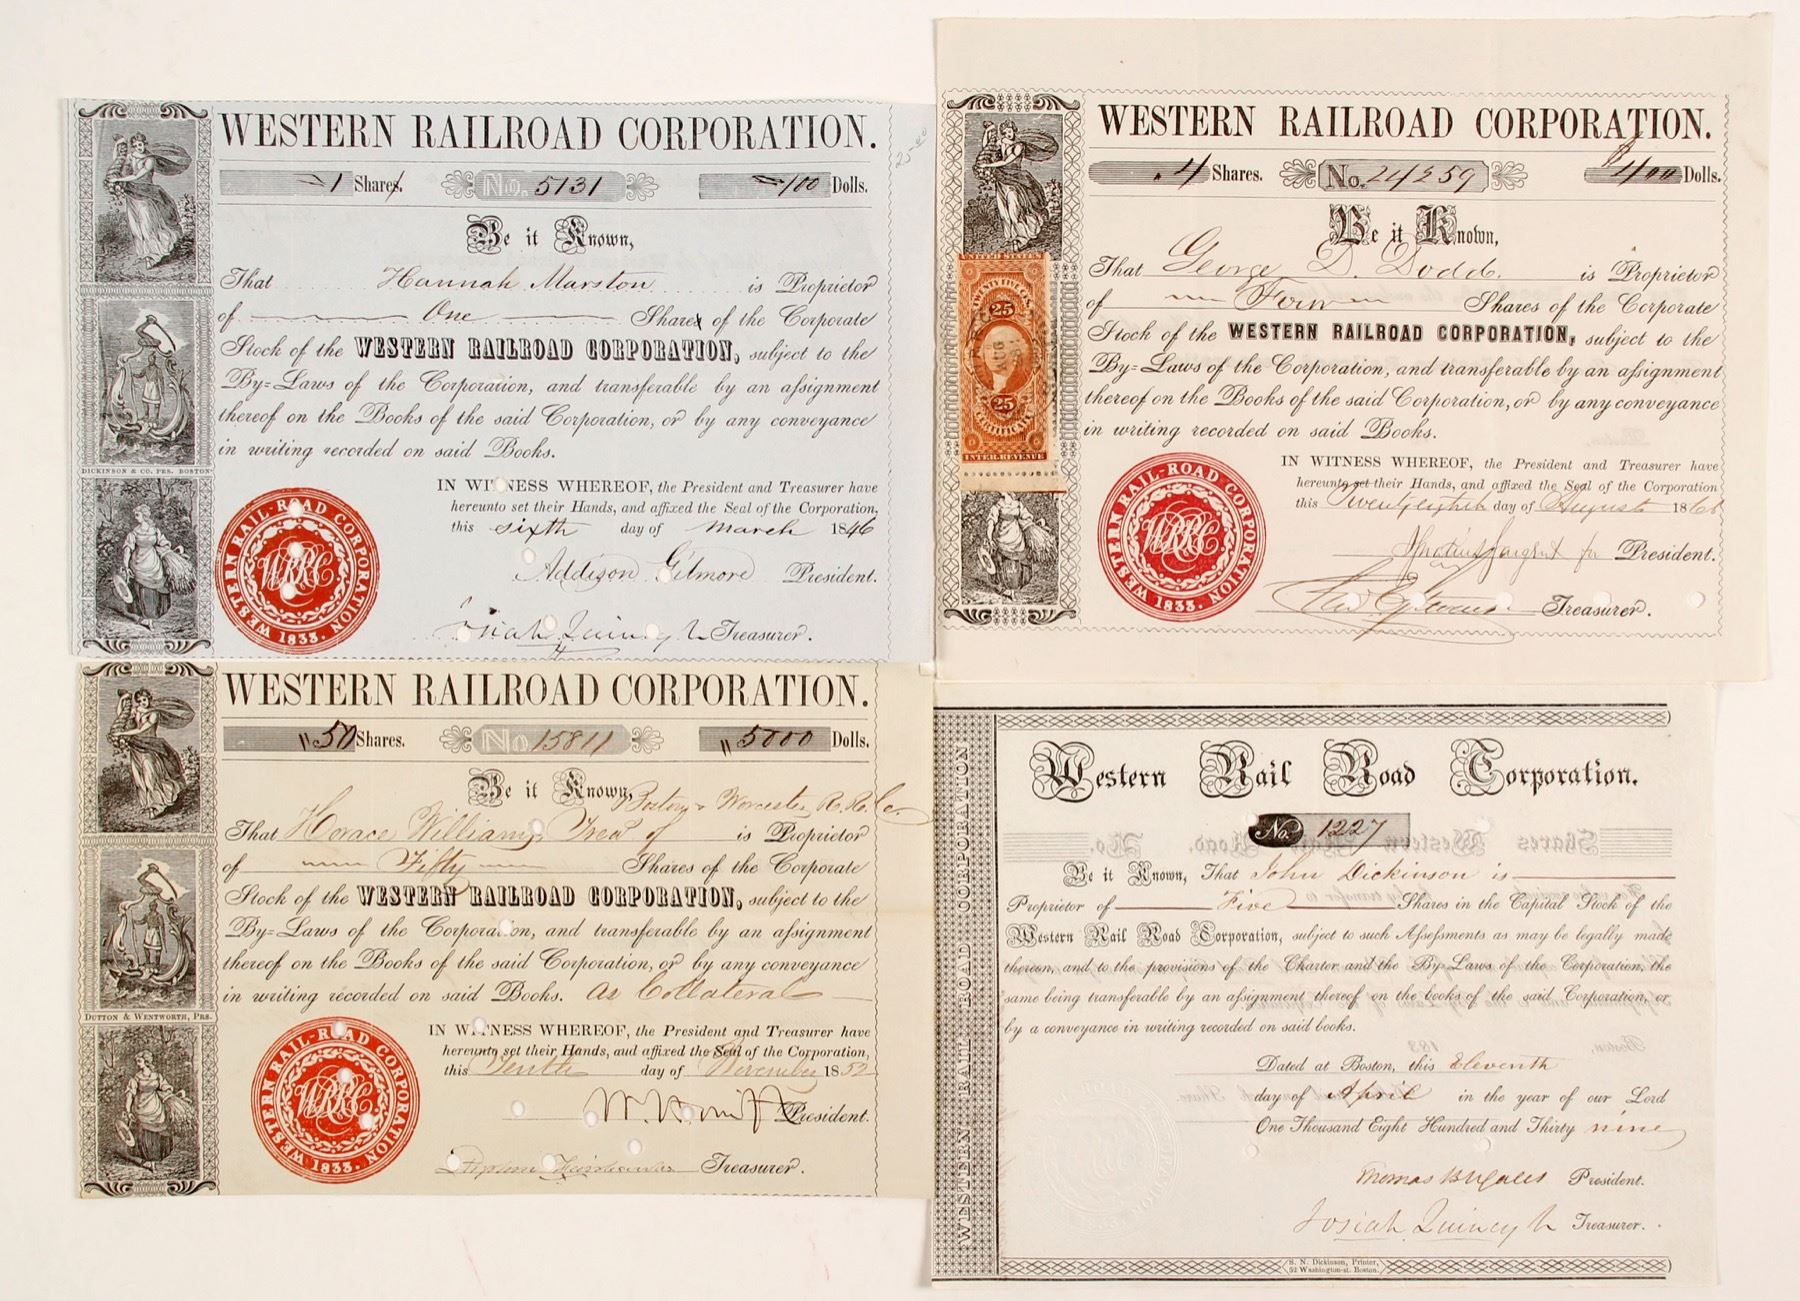 WESTERN RAILROAD CORPORATION.
1 Shares. No. 5131 100 Dolls.
25.00
Be it Known,
That Hannah Marston is Proprietor
of One Shares of the Corporate
Stock of the WESTERN RAILROAD CORPORATION, subject to the
By=Laws of the Corporation, and transferable by an assignment
thereof on the Books of the said Corporation, or by any conveyance
in writing recorded on said Books.
DICKINSON & CO. PRS. BOSTON
IN WITNESS WHEREOF, the President and Treasurer have
hereunto set their Hands, and affixed the Seal of the Corporation,
this sixth day of March 1846
Addison Gilmore President.
Josiah Quincy Jr Treasurer.
WESTERN RAIL-ROAD CORPORATION
WRRC
1833.
WESTERN RAILROAD CORPORATION.
4 Shares. No. 24259 $400 Dolls.
Be it Known,
That George D. Dodd. is Proprietor
of Four Shares of the Corporate
Stock of the WESTERN RAILROAD CORPORATION, subject to the
By=Laws of the Corporation, and transferable by an assignment
thereof on the Books of the said Corporation, or by any conveyance
in writing recorded on said Books.
UNITED STATES
TWENTY FIVE CENTS
25
AUG
28
25
CERTIFICATE
INTER. REVENUE
IN WITNESS WHEREOF, the President and Treasurer have
hereunto set their Hands, and affixed the Seal of the Corporation
this Twentyeighth day of August 186
for President.
Treasurer.
WESTERN RAIL-ROAD CORPORATION
WRRC
1833.
WESTERN RAILROAD CORPORATION.
50 Shares. No 15811 5000 Dolls.
Be it Known,
Boston & Worcester R. R. Co.
That Horace Williams Treas of is Proprietor
of Fifty Shares of the Corporate
Stock of the WESTERN RAILROAD CORPORATION, subject to the
By=Laws of the Corporation, and transferable by an assignment
thereof on the Books of the said Corporation, or by any conveyance
in writing recorded on said Books. as Collateral
DUTTON & WENTWORTH, PRS.
IN WITNESS WHEREOF, the President and Treasurer have
hereunto set their Hands, and affixed the Seal of the Corporation,
this Tenth day of November 1852
President.
Stephen Fairbanks Treasurer.
WESTERN RAIL-ROAD CORPORATION
WRRC
1833.
WESTERN RAIL-ROAD CORPORATION
Western Rail Road Corporation.
No. 1227
Be it Known, That John Dickinson is
Proprietor of Five Shares in the Capital Stock of the
Western Rail Road Corporation, subject to such Assessments as may be legally made
thereon, and to the provisions of the Charter and the By-Laws of the Corporation, the
same being transferable by an assignment thereof on the books of the said Corporation, or
by a conveyance in writing recorded on said books.
Dated at Boston, this Eleventh
day of April in the year of our Lord
One Thousand Eight Hundred and Thirty nine
Thomas B Wales President.
Josiah Quincy Jr Treasurer.
S. N. Dickinson, Printer,
52 Washington-st. Boston.